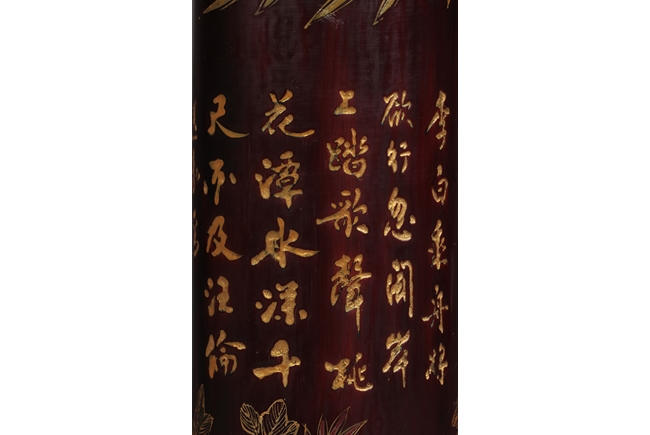 李白乘舟將
欲行忽聞岸
上踏歌聲桃
花潭水深千
尺不及汪倫